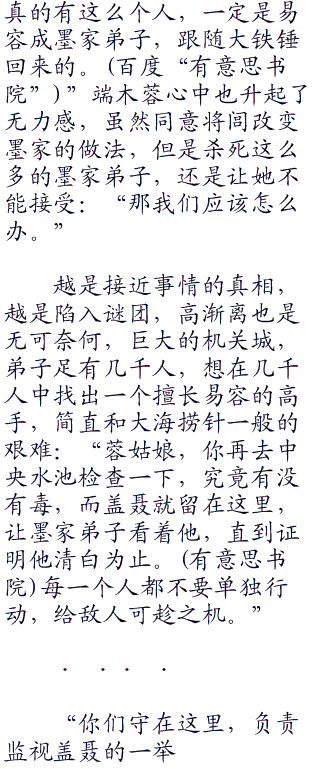 真的有这么个人，一定是易
容成墨家弟子，跟随大铁锤
回来的。(百度“有意思书
院”)”端木蓉心中也升起了
无力感，虽然同意将闾改变
墨家的做法，但是杀死这么
多的墨家弟子，还是让她不
能接受：“那我们应该怎么
办。”
越是接近事情的真相，
越是陷入谜团，高渐离也是
无可奈何，巨大的机关城，
弟子足有几千人，想在几千
人中找出一个擅长易容的高
手，简直和大海捞针一般的
艰难：“蓉姑娘，你再去中
央水池检查一下，究竟有没
有毒，而盖聂就留在这里，
让墨家弟子看着他，直到证
明他清白为止。(有意思书
院)每一个人都不要单独行
动，给敌人可趁之机。”
. . . . .
“你们守在这里，负责
监视盖聂的一举